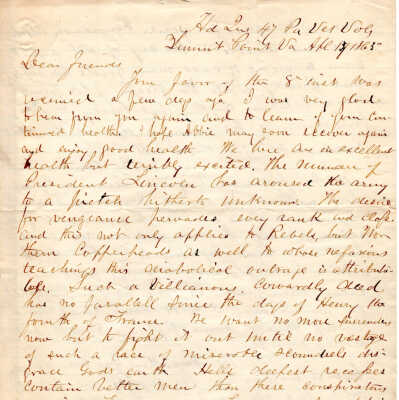 Hd Qrs 47 Pa Vet Vols
Summit Point Va Apl 19 1865
Dear friends
Your favor of the 8th inst was
received a few days ago I was very glad
to hear from you again and to learn of your con
tinued health I hope Abbie may soon recover again
and enjoy good health We here are in excellent
health but highly excited. The murder of
President Lincoln has aroused the army
to a pitch hitherto unknown. The desire
for vengeance pervades every rank and class
and this not only applies to Rebels, but Nor
thern Copperheads as well to whose nefarious
teachings this diabolical outrage is attributa
ble. Such a villianous, Cowardly deed
has no parallell since the days of Henry the
fourth of France. We want no more surrenders
now but to fight it out until no vestage
of such a race of miserable scoundrels dis-
grace Gods earth Hells deepest recesses
contain better men than these conspirators